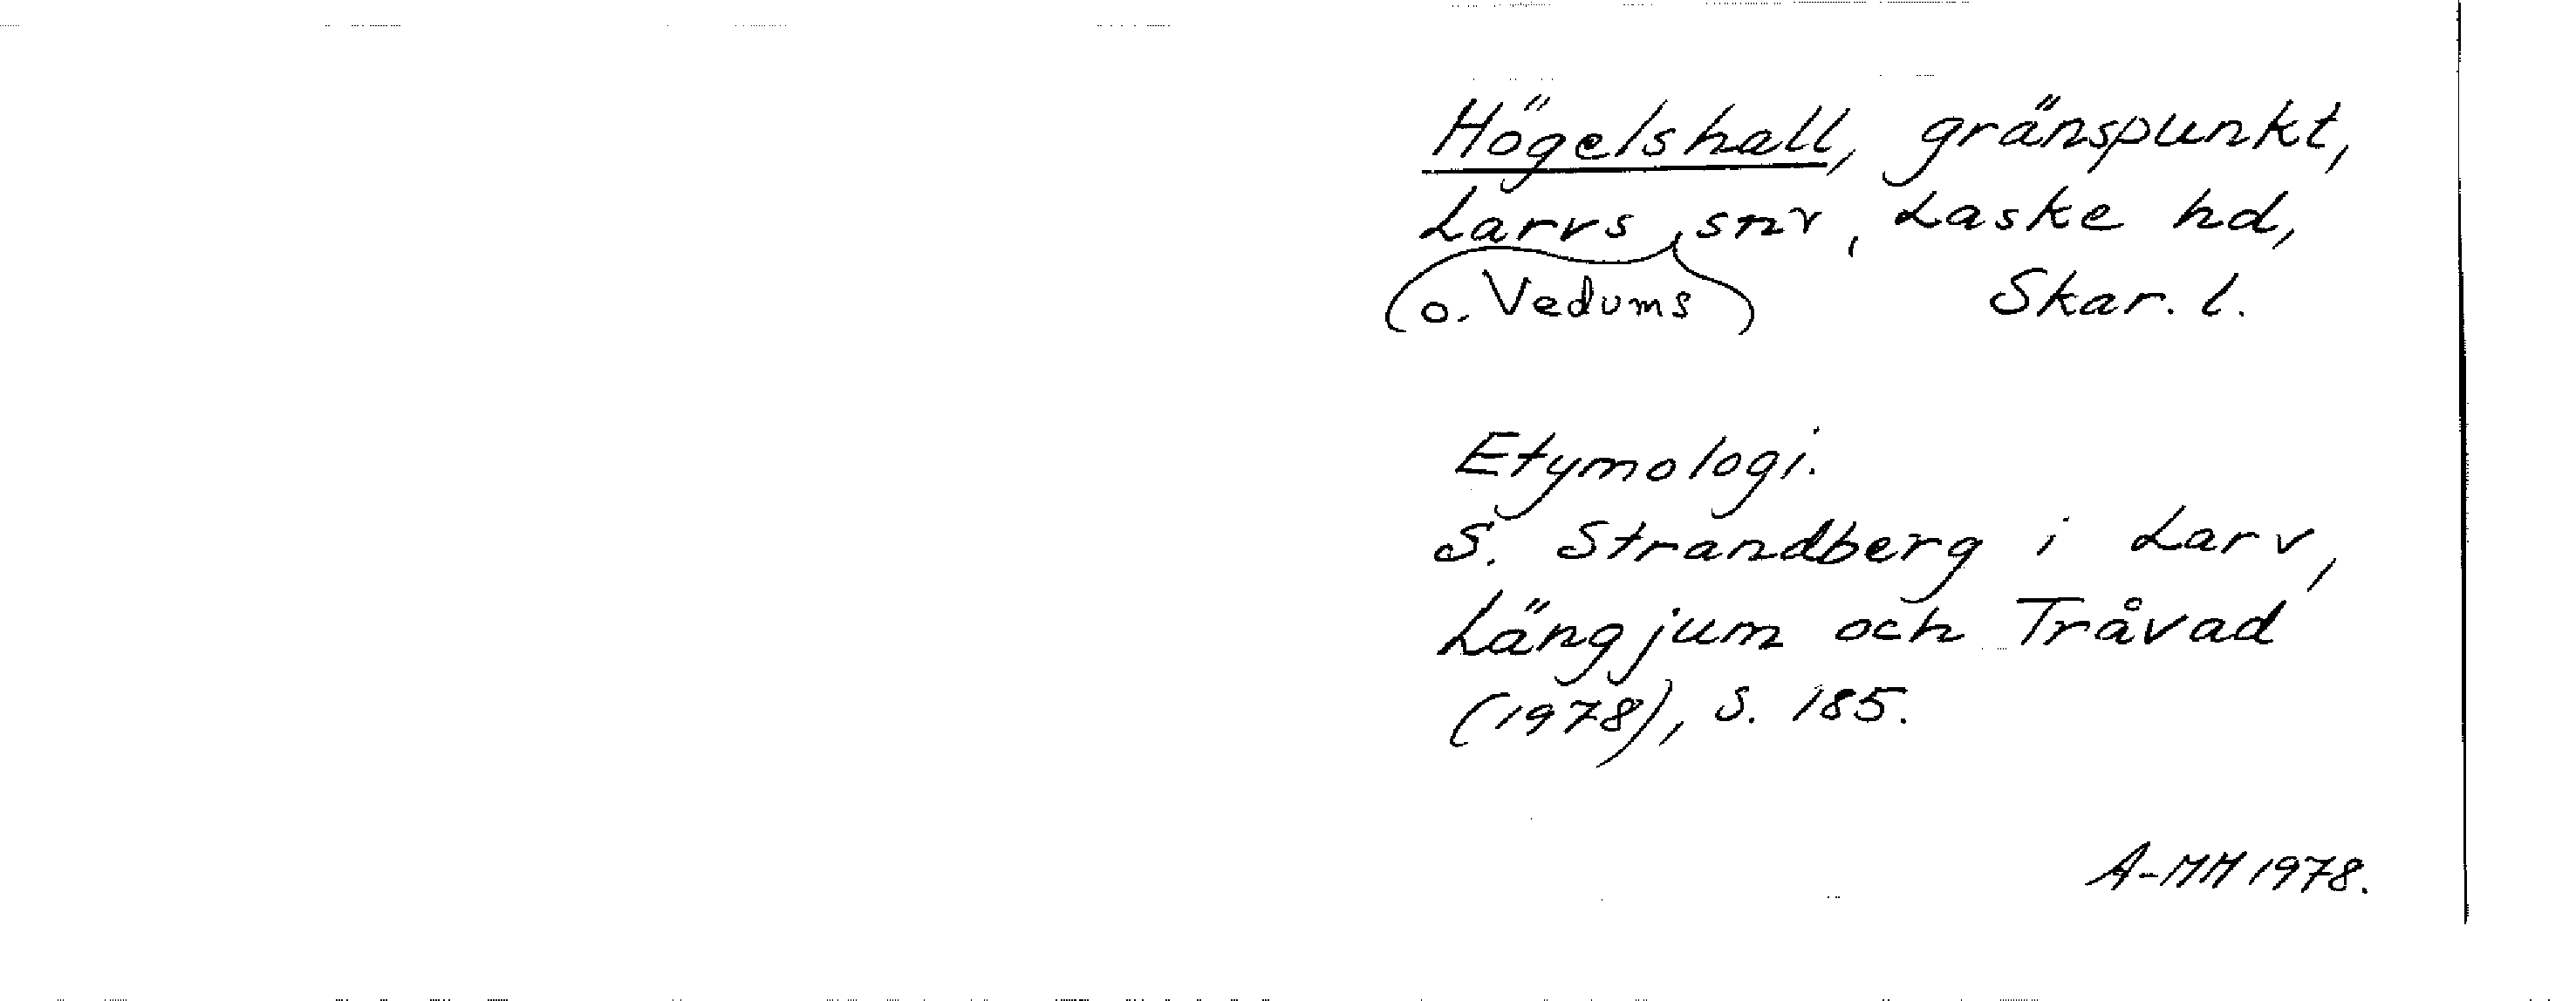 Högelshall, gränspunkt,
Larvs snr, Laske hd,
o. Vedums
Skar. l.
Etymologi.
S. Strandberg i Larv,
Längjum och Tråvad
(1978), s. 185.
A-MM 1978.